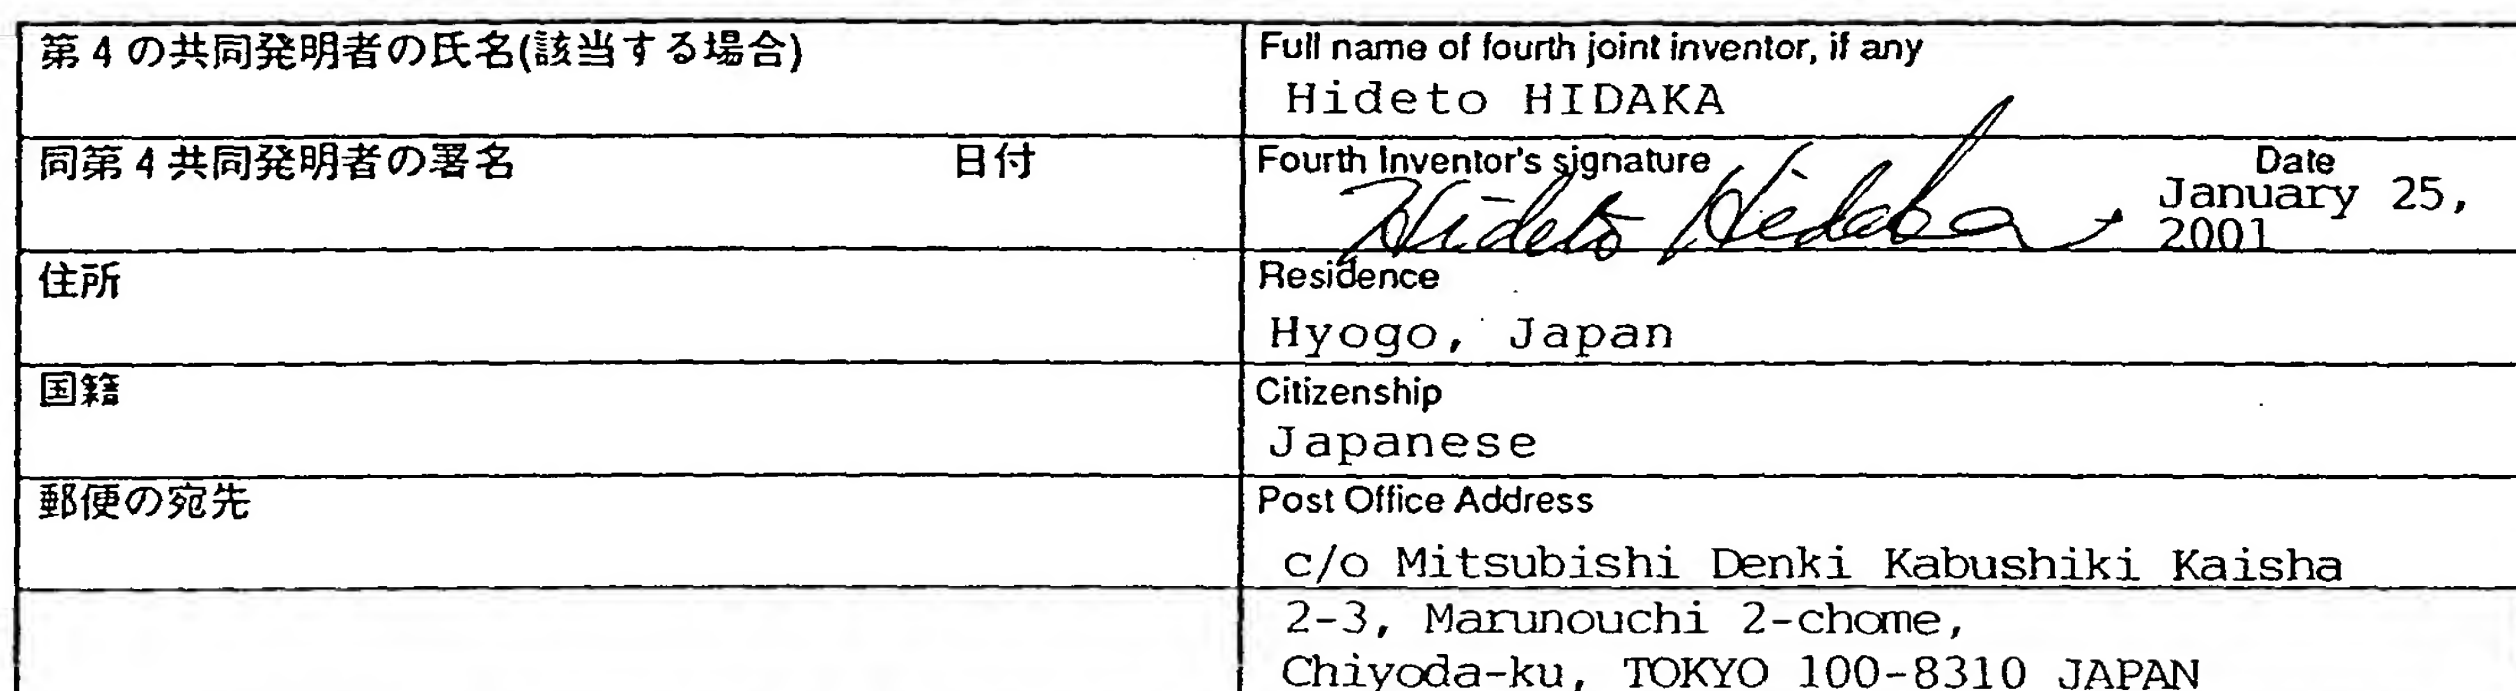 第4の共同発明者の氏名(該当する場合)
Full name of fourth joint inventor, if any
Hideto HIDAKA
同第4共同発明者の署名 日付
Fourth Inventor's signature Date
Hideto Hidaka
January 25,
2001
住所
Residence
Hyogo, Japan
国籍
Citizenship
Japanese
郵便の宛先
Post Office Address
c/o Mitsubishi Denki Kabushiki Kaisha
2-3, Marunouchi 2-chome,
Chiyoda-ku, TOKYO 100-8310 JAPAN